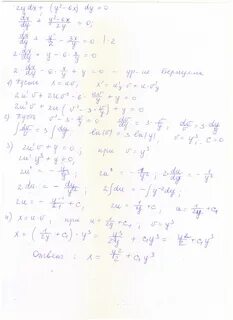 2y dx + (y² - 6x) dy = 0
dx/dy + (y² - 6x)/2y = 0;
dx/dy + y/2 - 3x/y = 0 |·2
2·dx/dy + y - 6·x/y = 0
2·dx/dy - 6·x/y + y = 0 - ур-ие Бернулли
1) Пусть x = u·v, x' = u'v + uv'
2u'v + 2uv' - 6·uv/y + y = 0
2u'v + 2u(v' - 3·v/y) + y = 0
2) Пусть v' - 3·v/y = 0, dv/dy = 3·v/y, dv/v = 3·dy/y
∫dv/v = 3∫dy/y, ln(v) = 3·ln(y), v = y³, C = 0
3) 2u'v + y = 0, при v = y³
2u'y³ + y = 0,
2u' = -y/y³, 2u' = -1/y², 2·du/dy = -1/y²
2du = -dy/y², 2∫du = -∫y⁻²dy
2u = -y⁻¹/-1 + C₁, 2u = 1/y + C₁, u = 1/2y + C₁
4) x = u·v, при u = 1/2y + C₁, v = y³
x = (1/2y + C₁)·y³ = y³/2y + C₁y³ = y²/2 + C₁y³
Ответ: x = y²/2 + C₁y³